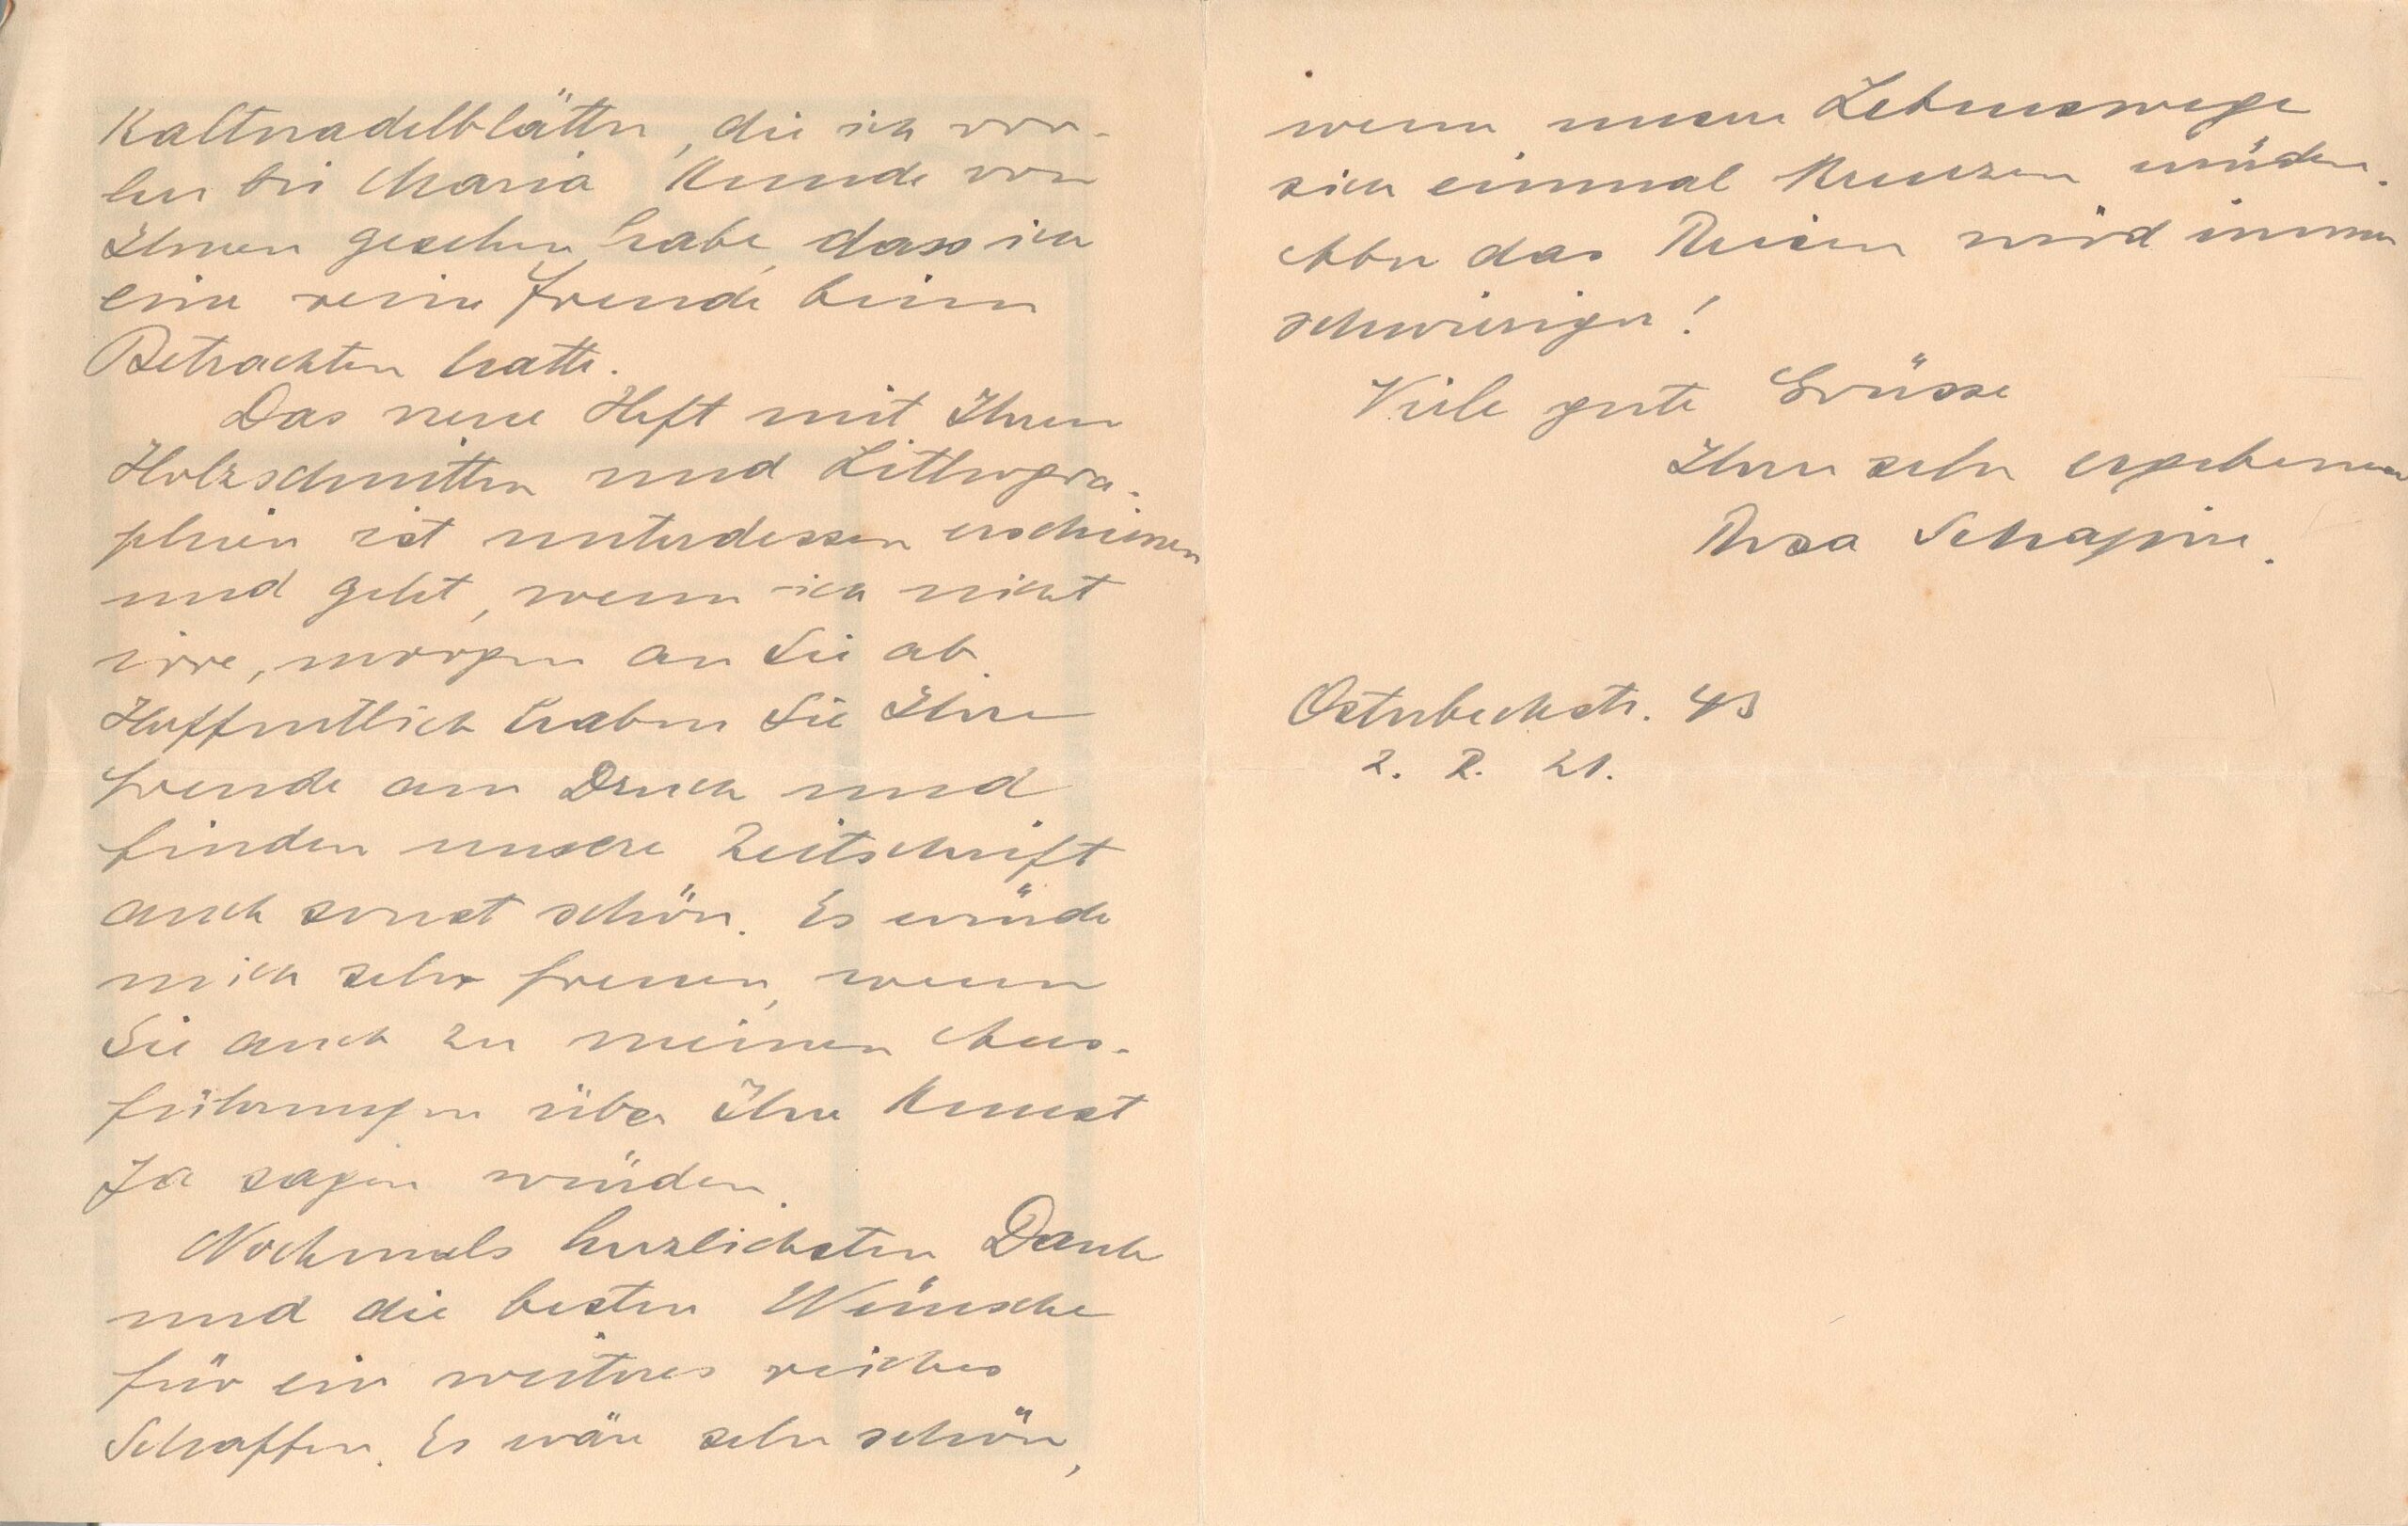 Kaltnadelblätter, die ich vor-
her bei Maria Kunde von
Ihnen gesehen habe, dass ich
eine reine Freude beim
Betrachten hatte.
Das neue Heft mit Ihren
Holzschnitten und Lithogra-
phien ist unterdessen erschienen
und geht, wenn ich nicht
irre, morgen an Sie ab.
Hoffentlich haben Sie Ihre
Freude am Druck und
finden unsere Zeitschrift
auch sonst schön. Es würde
mich sehr freuen, wenn
Sie auch zu meinen Aus-
führungen über Ihre Kunst
Ja sagen würden.
Nochmals herzlichsten Dank
und die besten Wünsche
für ein weiteres reiches
Schaffen. Es wäre sehr schön,
wenn unsere Lebenswege
sich einmal kreuzen würden.
Aber das Reisen wird immer
schwieriger!
Viele gute Grüsse
Ihre sehr ergebene
Rosa Schapire.
Osterbeckstr. 43
2. 2. 21.